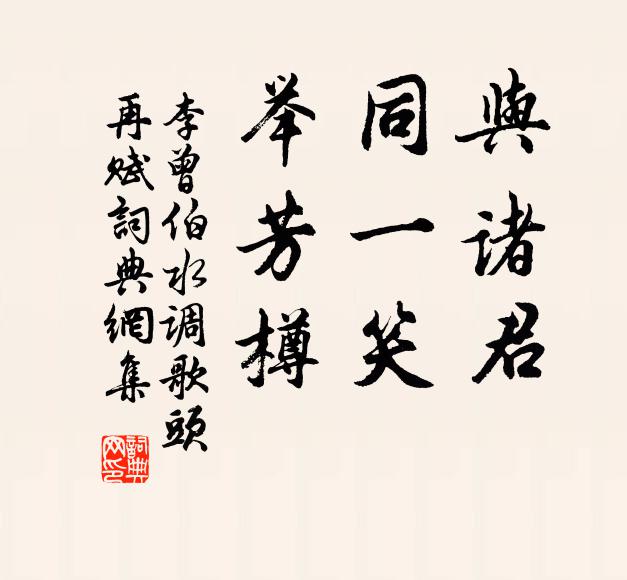 與诸君
同一笑
举芳樽
李曾伯水调歌頭
再赋詞典網集
詞典网印